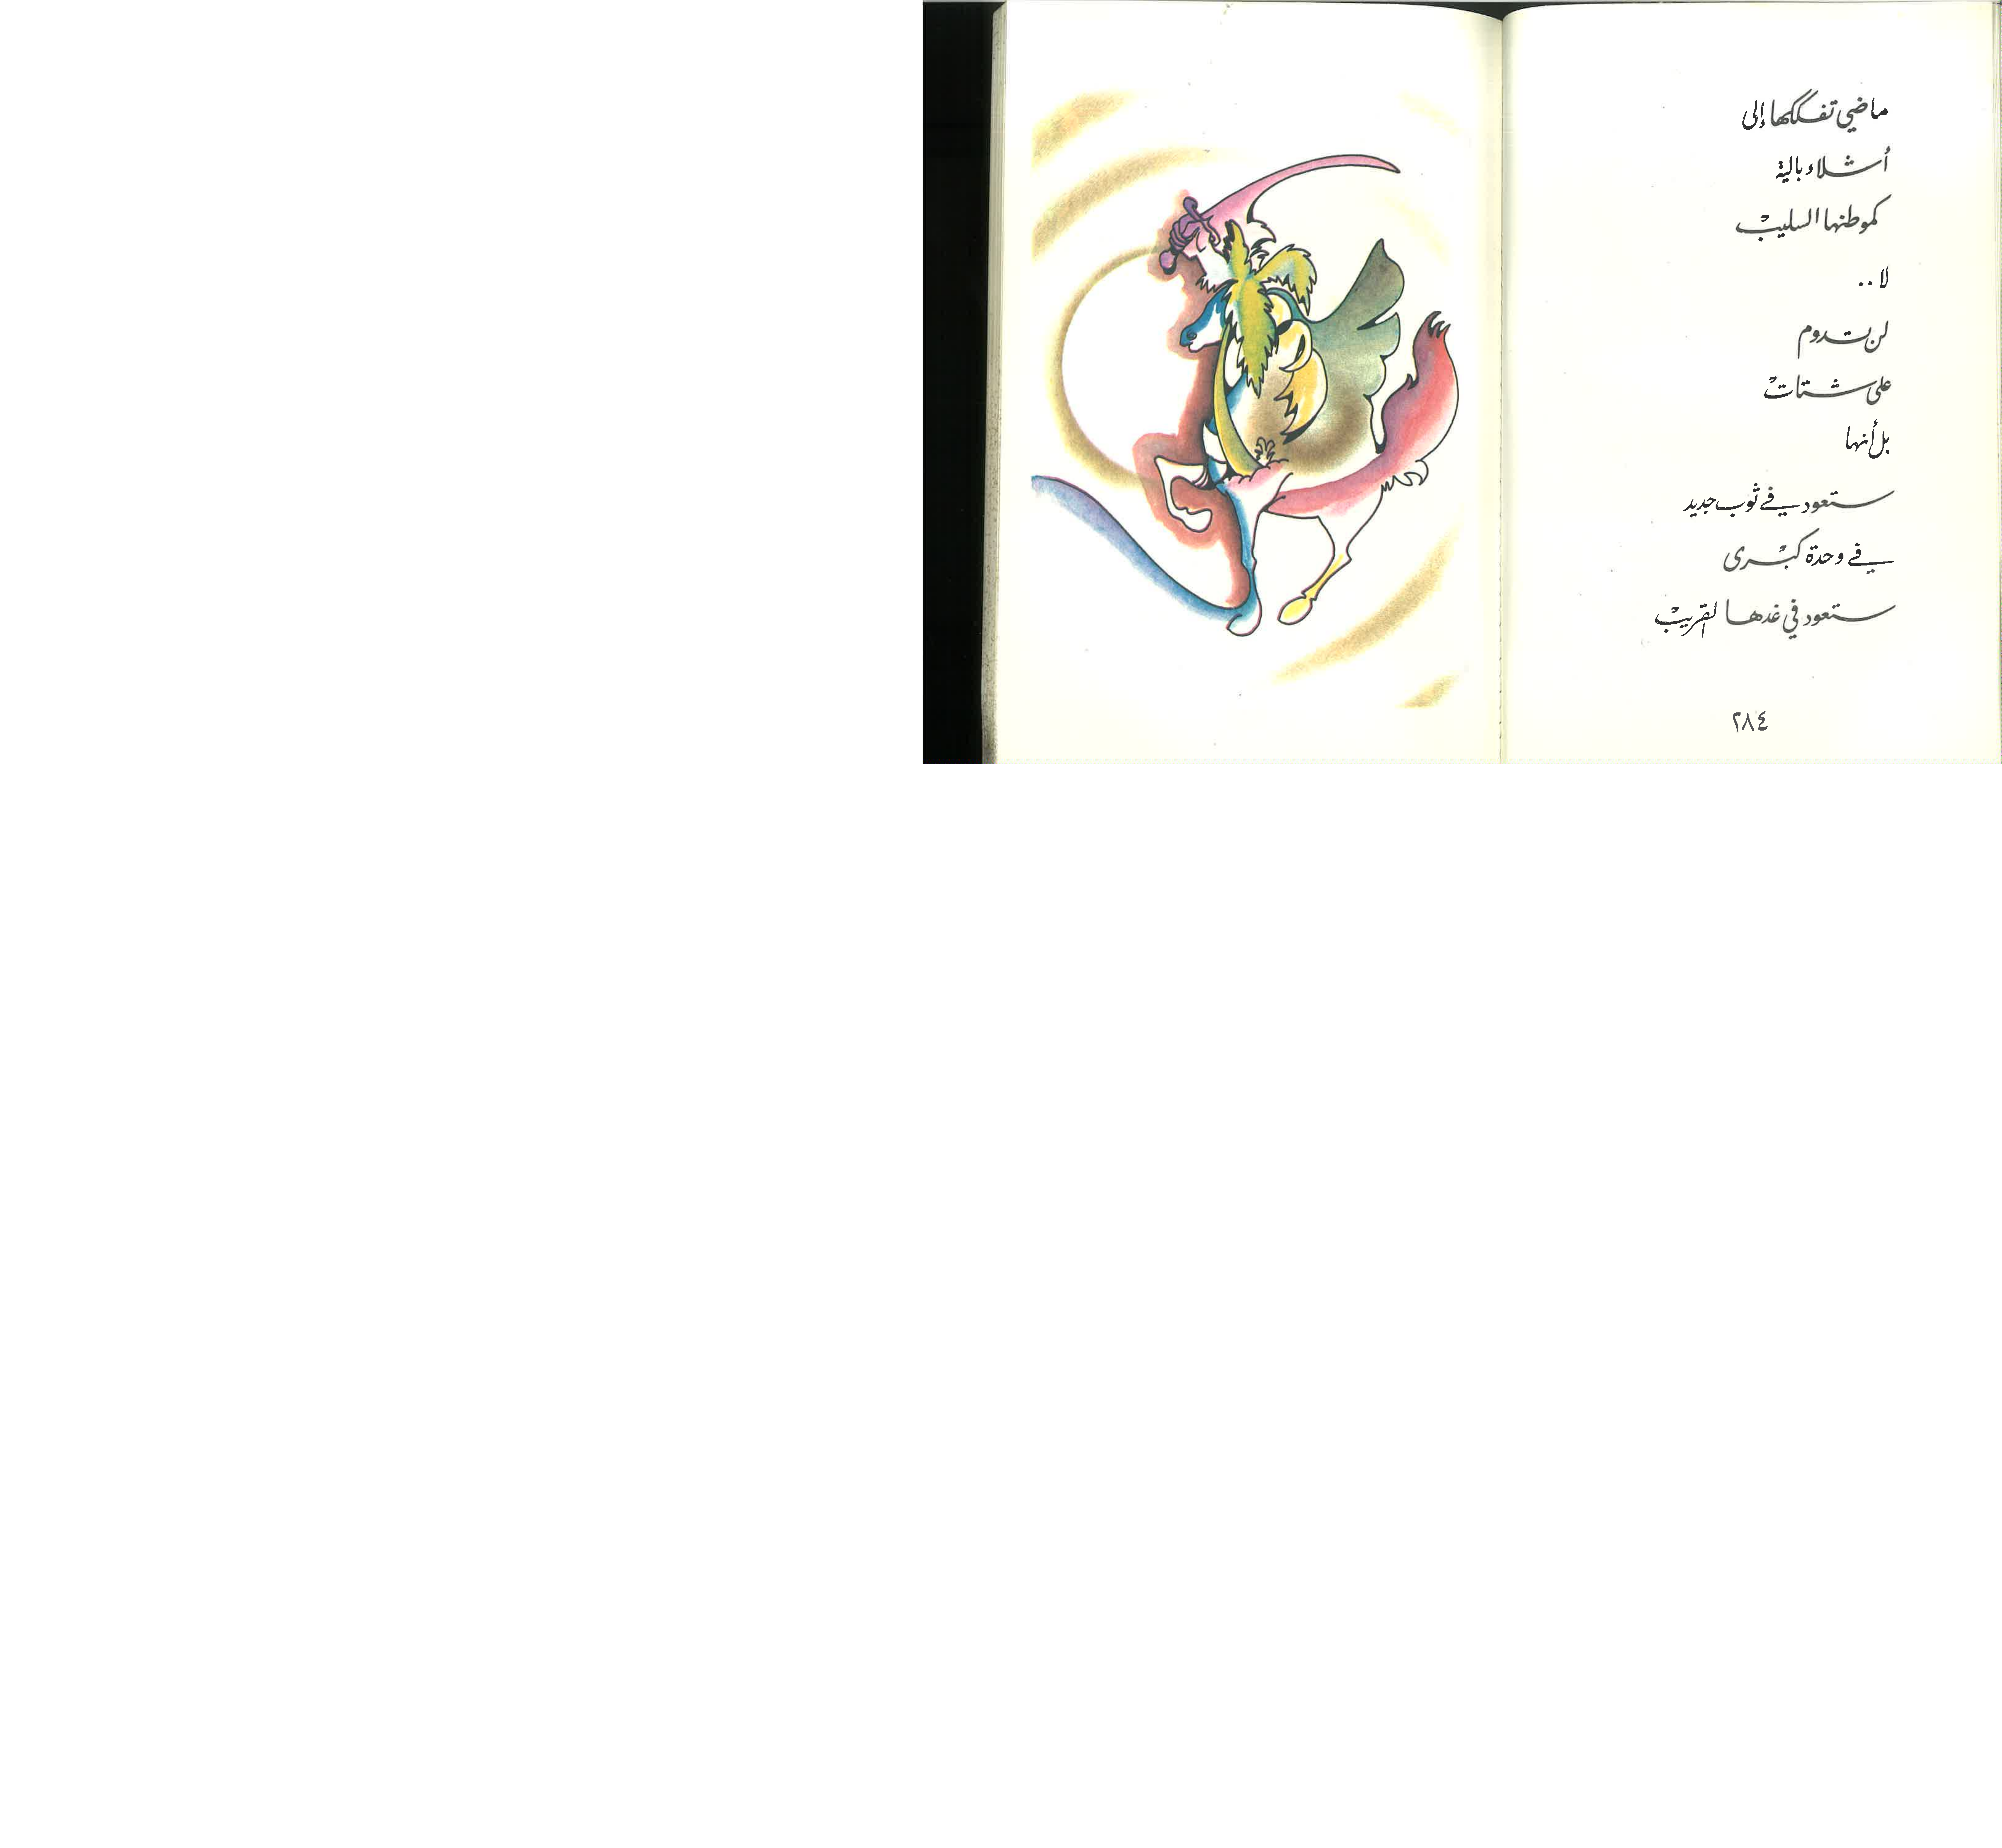 ماضي تفككها إلى
أشلاء بالية
كموطنها السليب
لا..
لن تدوم
على شتات
بل أنها
ستعود في ثوب جديد
في وحدة كبرى
ستعود في غدها القريب
٢٨٤